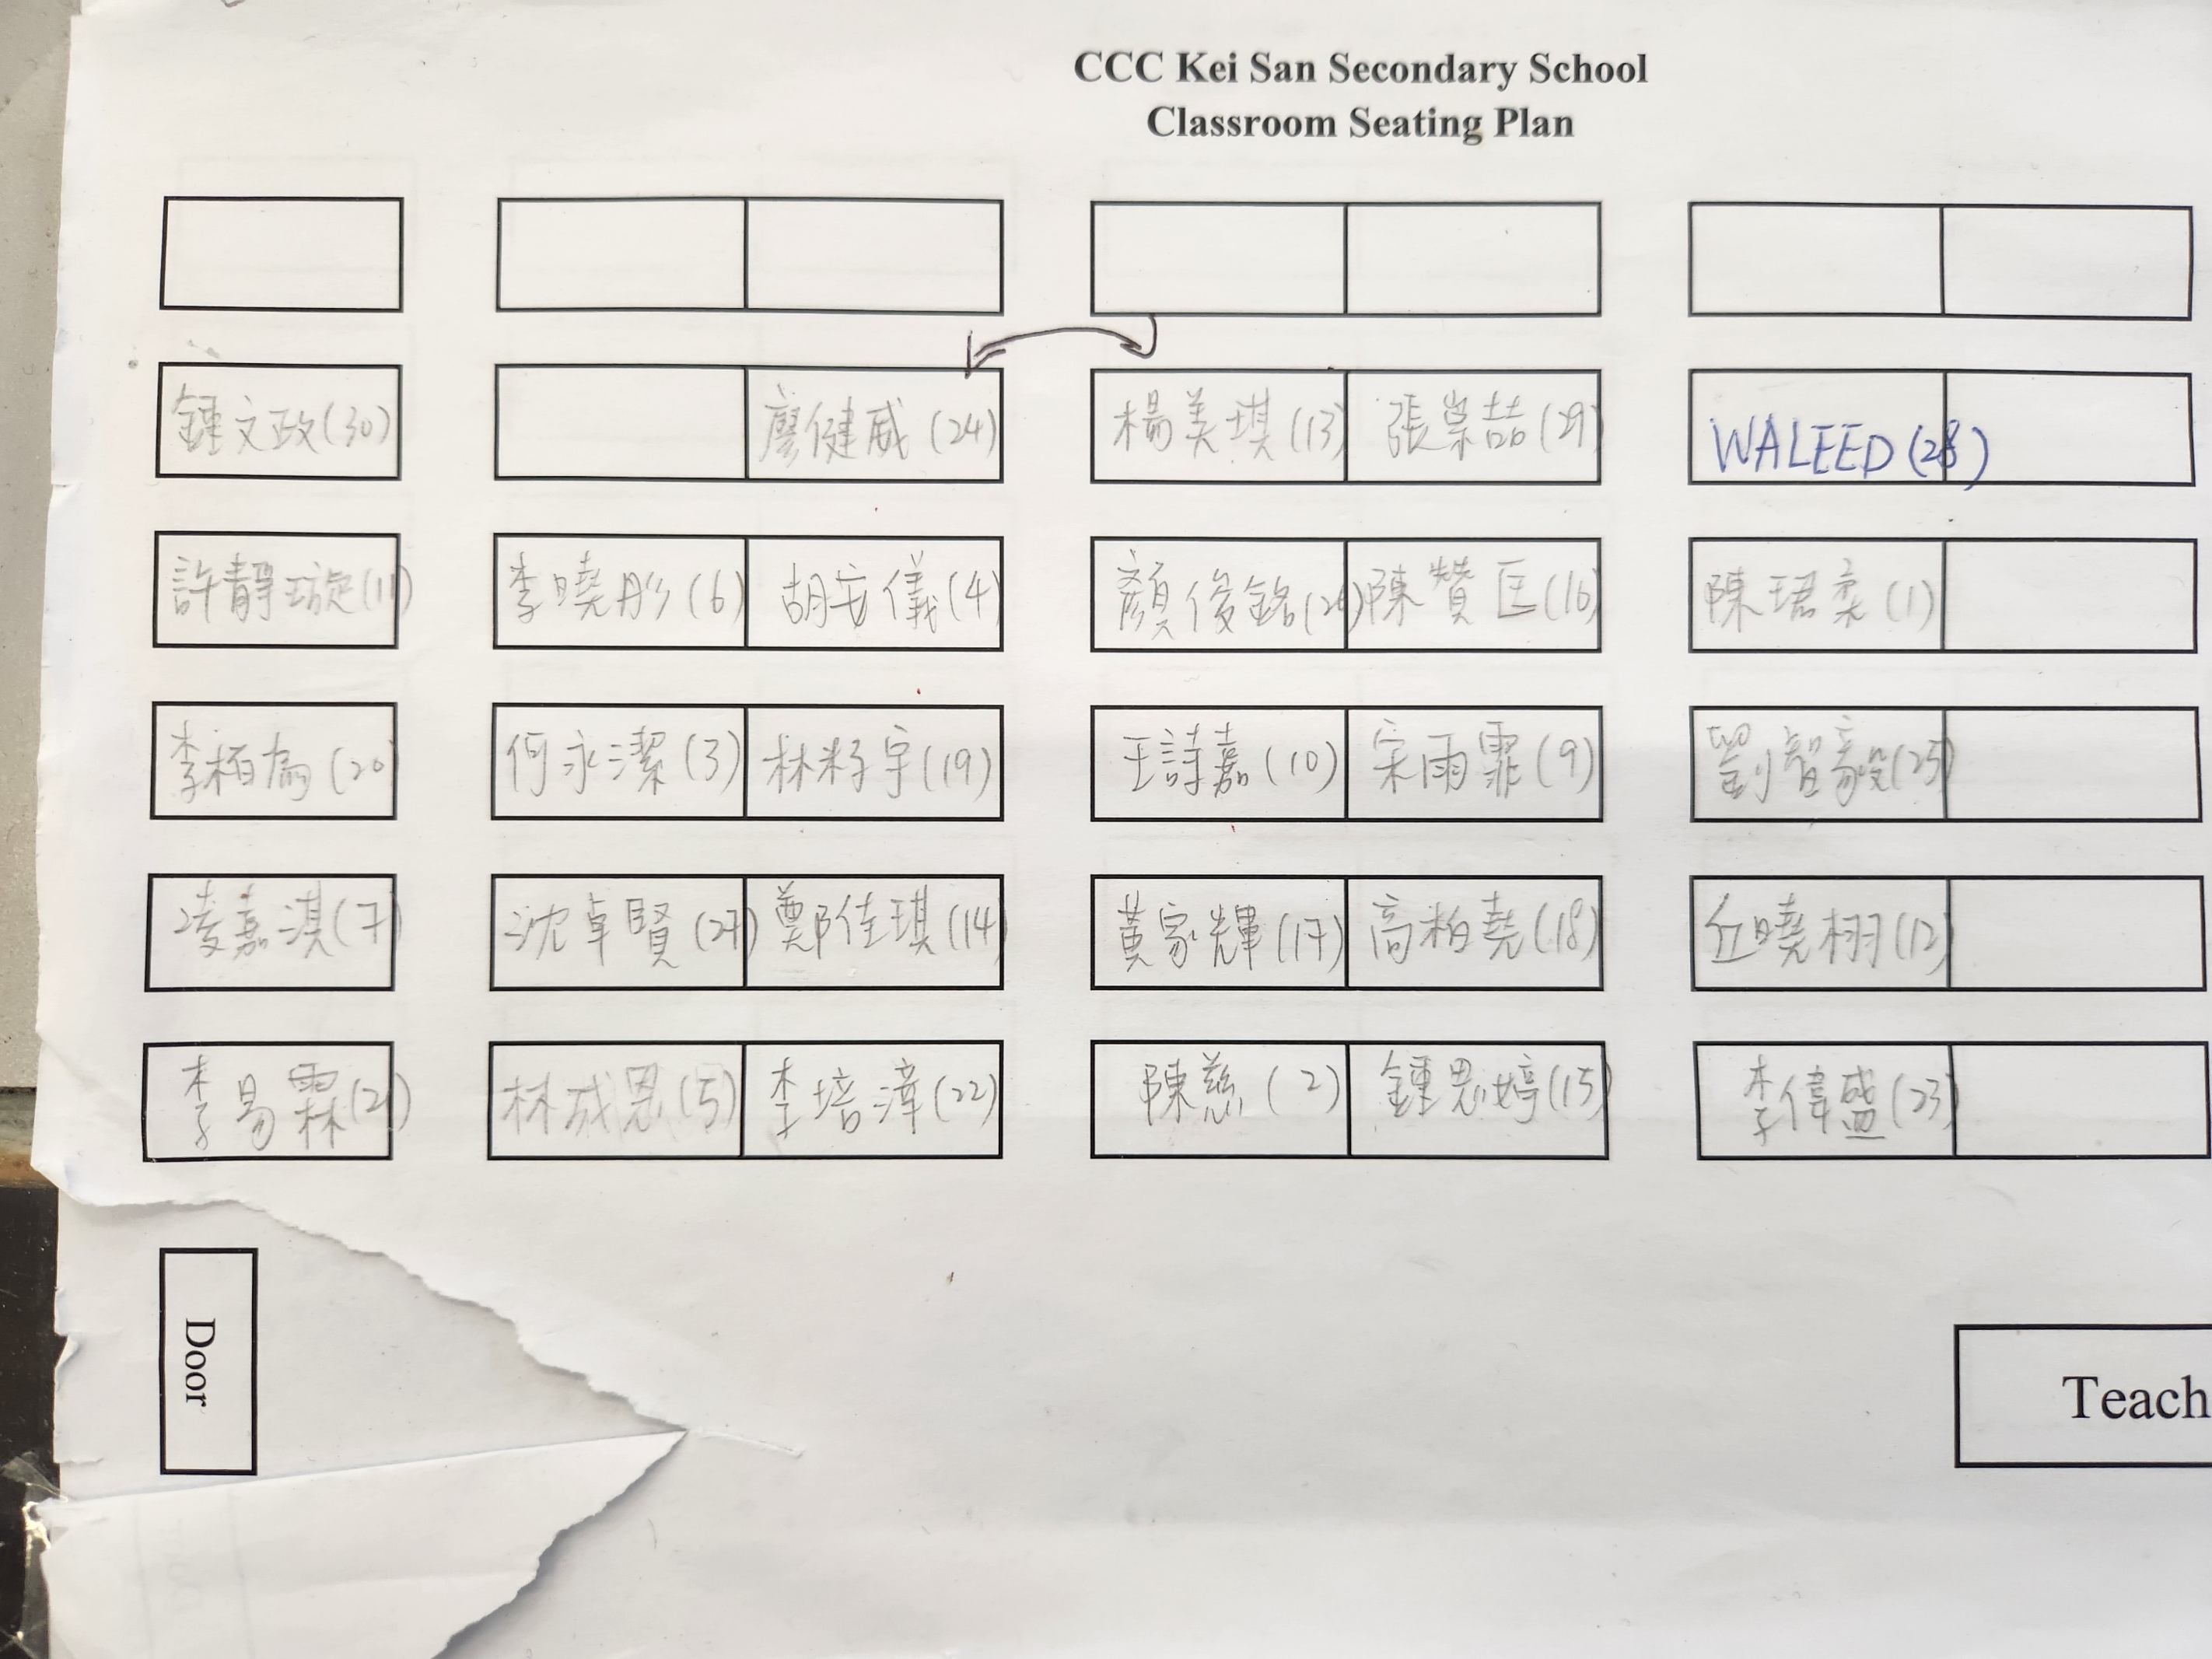 CCC Kei San Secondary School
Classroom Seating Plan
鍾文政(30) 廖健威(24) 楊美琪(13) 張崇喆(29) WALEED(28)
許靜璇(11) 李曉彤(6) 胡安儀(4) 顏俊銘(26) 陳贊匡(16) 陳珺柔(1)
李栢喬(20) 何永潔(3) 林籽宇(19) 王詩嘉(10) 宋雨霏(9) 劉智毅(25)
凌嘉淇(7) 沈卓賢(27) 鄭佳琪(14) 黃家輝(17) 高柏堯(18) 丘曉栩(12)
李易霖(21) 林成恩(5) 李培漳(22) 陳慈(2) 鍾思婷(15) 李偉盛(23)
Door
Teach